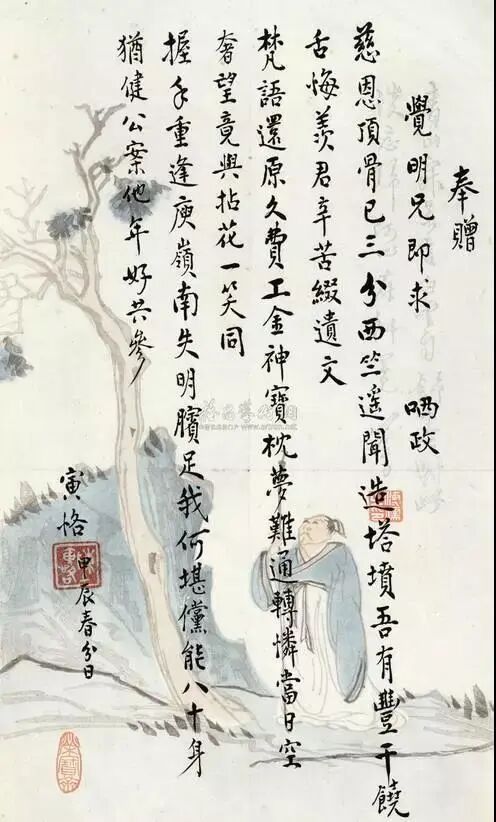 奉贈
覺明兄即求 哂政
慈恩頂骨已三分西竺遥聞造塔墳吾有豐干饒
舌悔羨君辛苦綴遺文
梵語還原久費工金神寶枕夢難通轉憐當日空
奢望竟與拈花一笑同
握手重逢庾嶺南失明臏足我何堪儻能八十身
猶健公案他年好共參
寅恪
甲辰春分日
榮寶齋